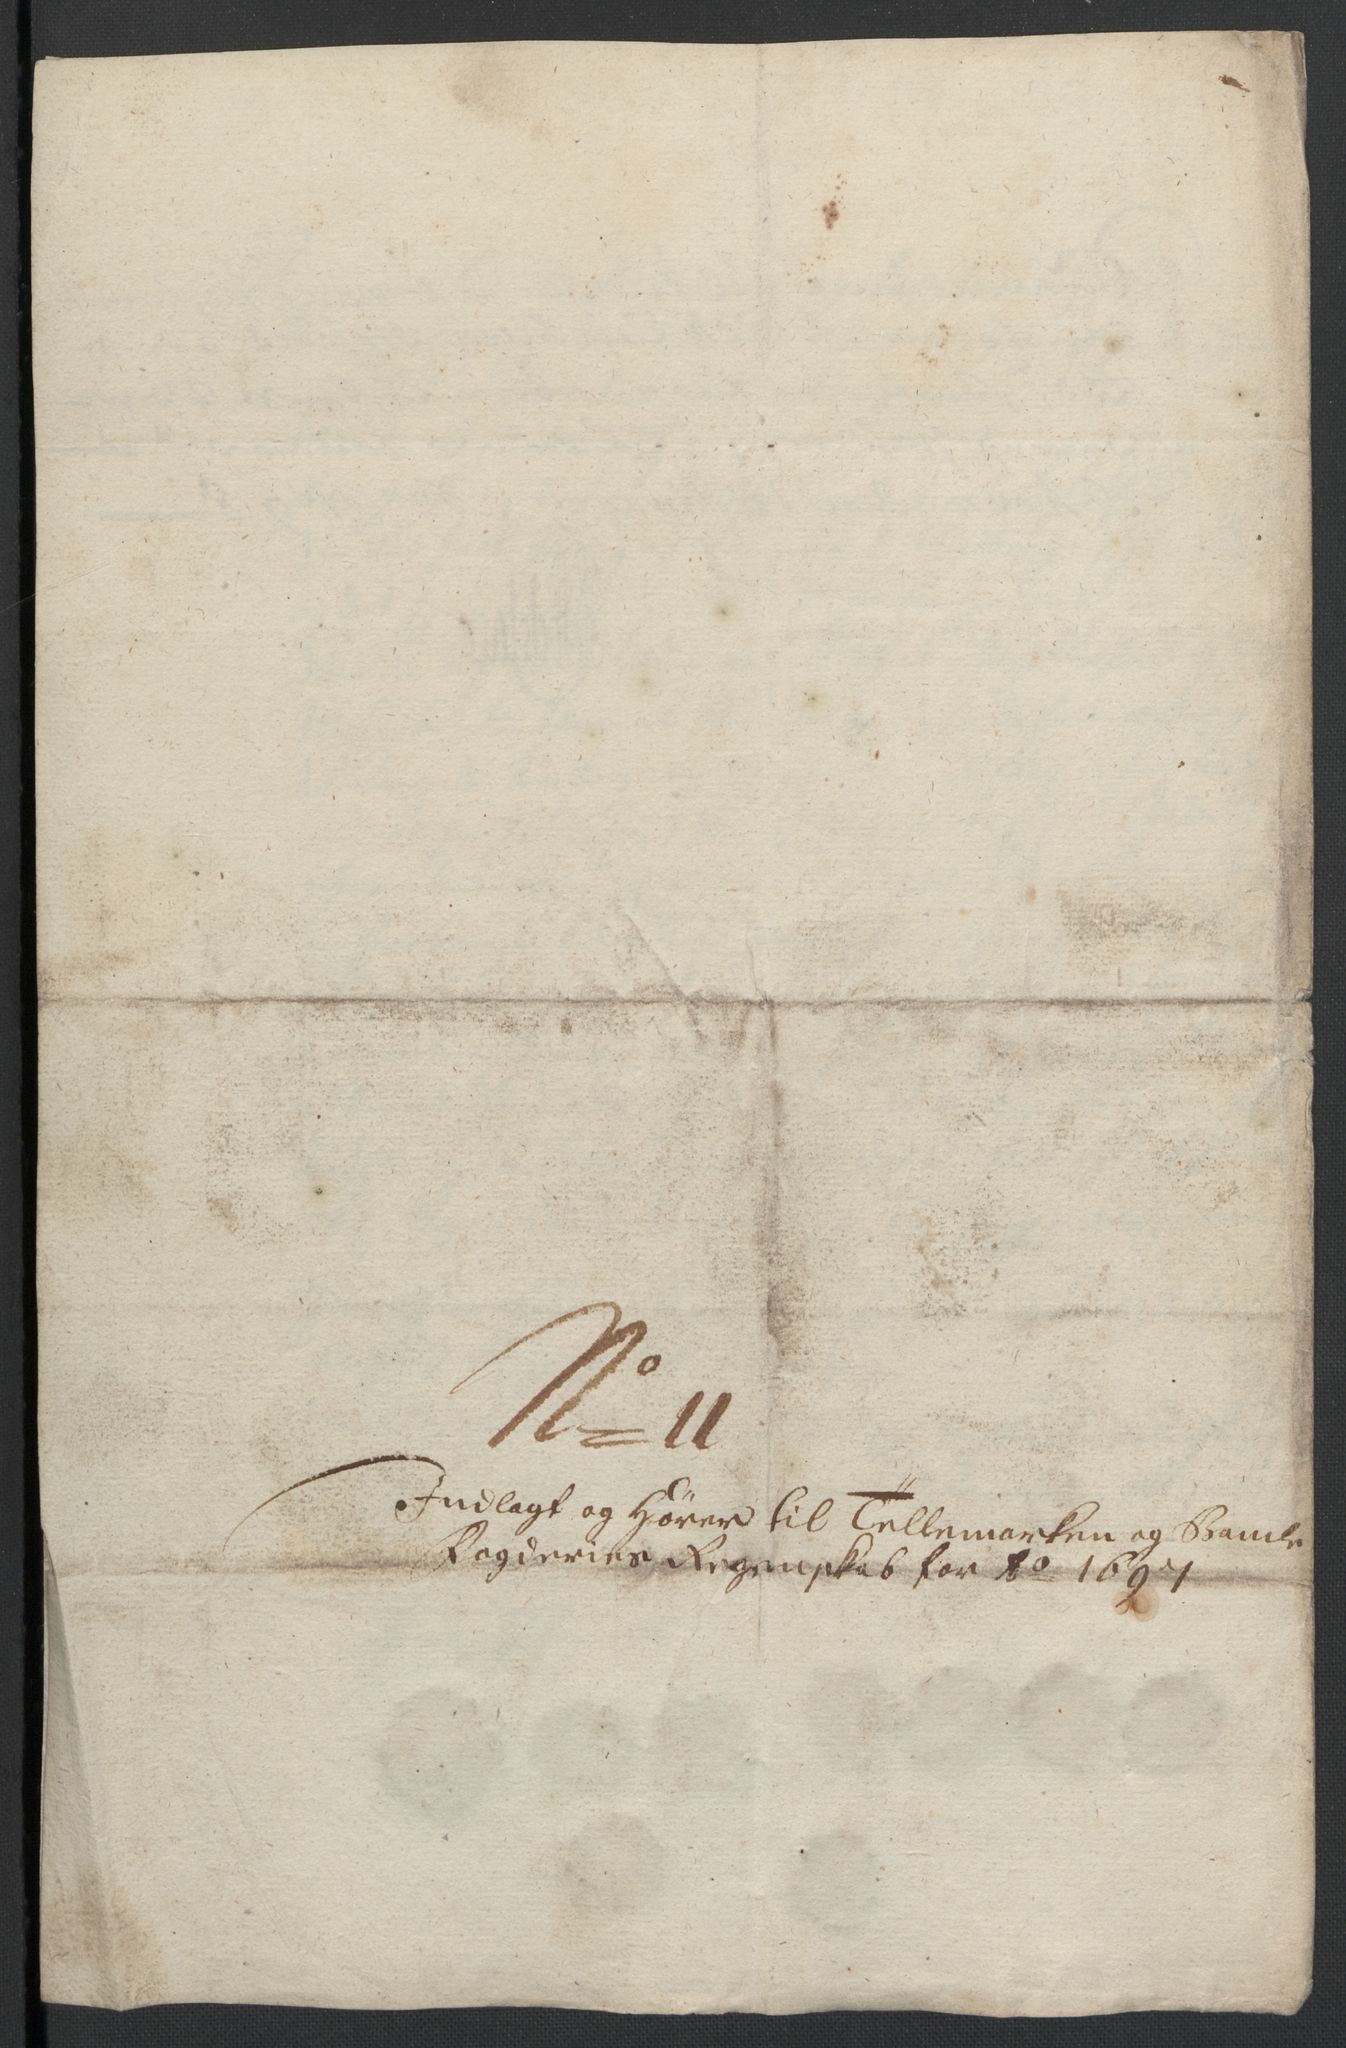 No 11
Indlagt og Hører til Tellemarken og Bamle
Fogderies Regenskab for Ao 1697